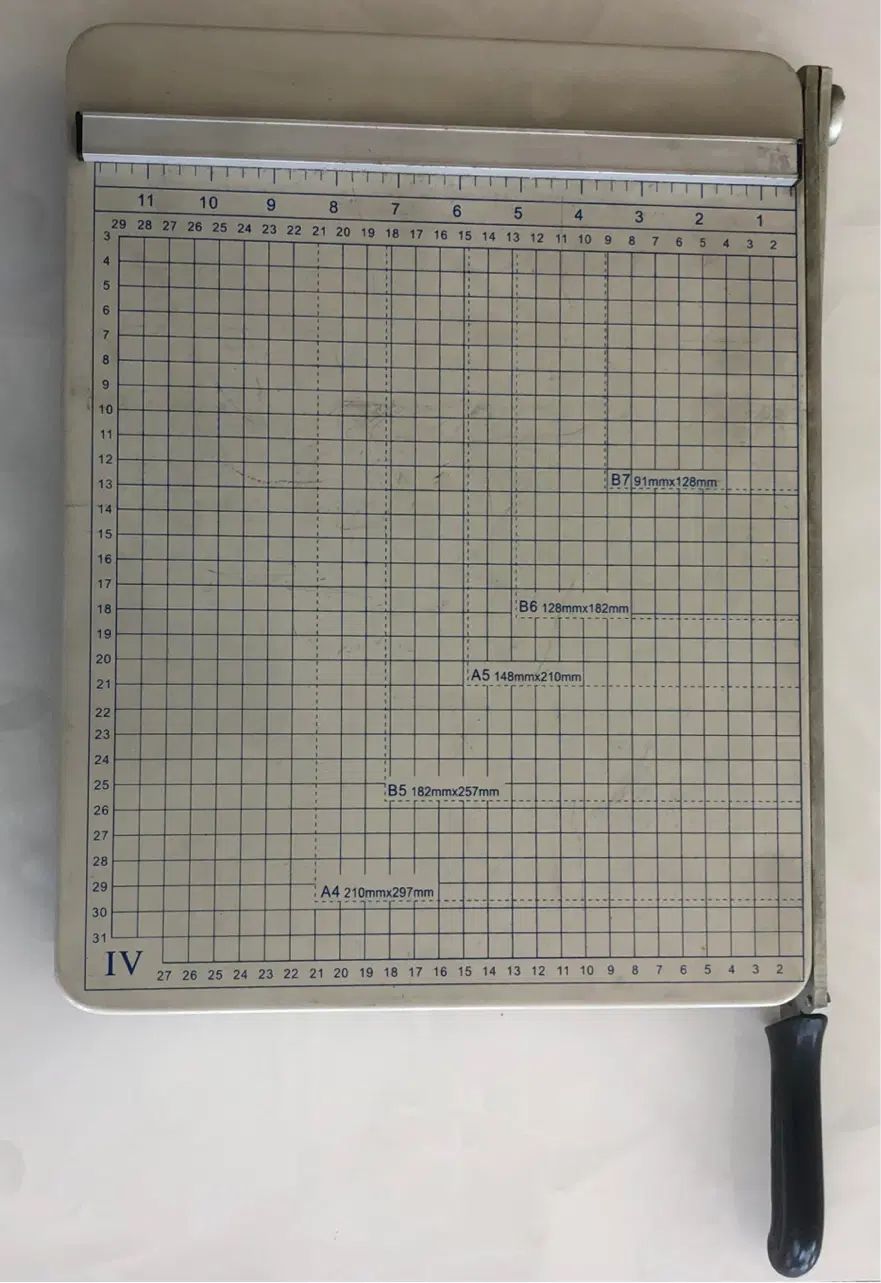 11 10 9 8 7 6 5 4 3 2 1
29 28 27 26 25 24 23 22 21 20 19 18 17 16 15 14 13 12 11 10 9 8 7 6 5 4 3 2
3
4
5
6
7
8
9
10
11
12
13
B7 91mmx128mm
14
15
16
17
18
B6 128mmx182mm
19
20
21
A5 148mmx210mm
22
23
24
25
B5 182mmx257mm
26
27
28
29
A4 210mmx297mm
30
31
IV
27 26 25 24 23 22 21 20 19 18 17 16 15 14 13 12 11 10 9 8 7 6 5 4 3 2